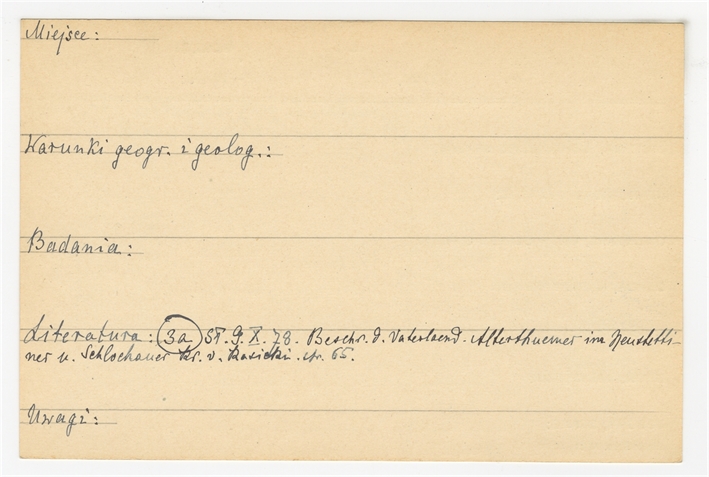 Miejsce:
Warunki geogr. i geolog.:
Badania:
Literatura: 3a ST. G. X. 78. Beschr. d. Vaterlaend. Alterthuemer im Neustetti-
ner u. Schlochauer Kr. v. Kasiski. str. 65.
Uwagi: